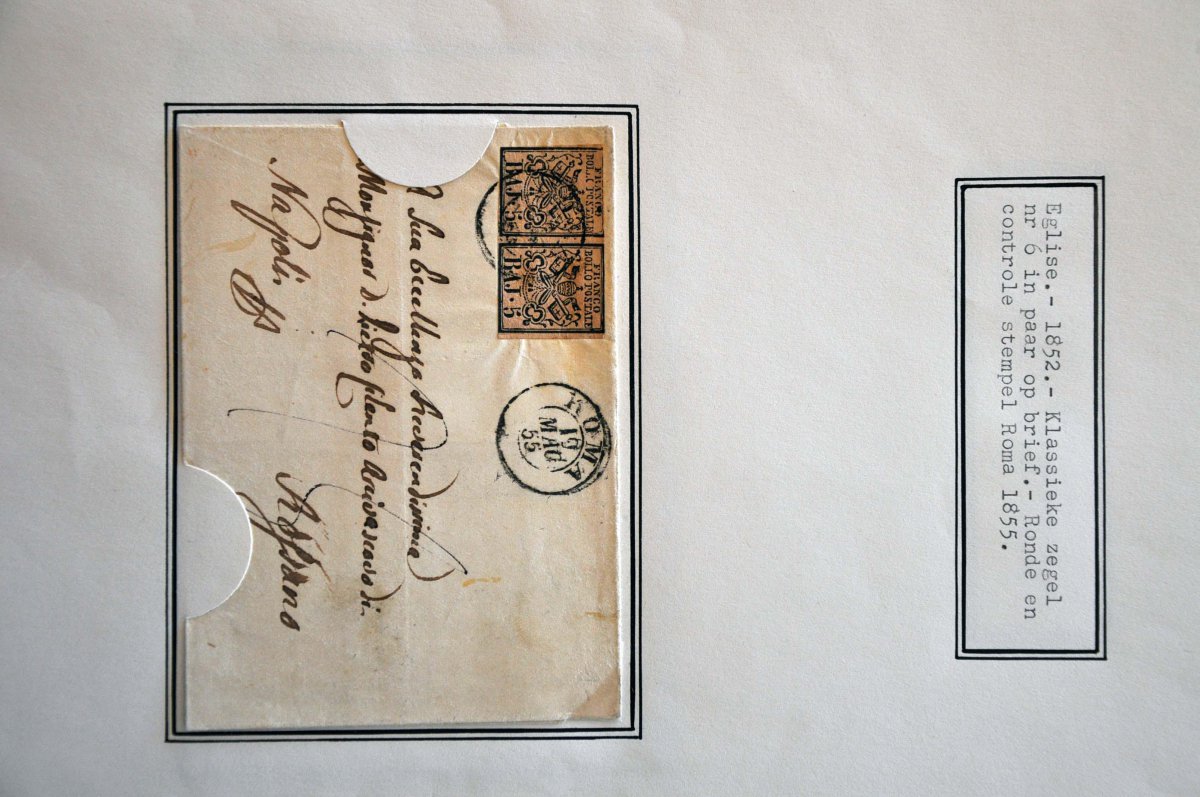 Eglise.- 1852.- Klassieke zegel
nr 6 in paar op brief.- Ronde en
controle stempel Roma 1855.
FRANCO
BOLLO POSTALE
BAJ. 5
FRANCO
BOLLO POSTALE
BAJ. 5
ROMA
MAG
55
A Sua Eccellenza Reverendissima
Monsignor D. Pietro Arcivescovo di
Rossano
Napoli